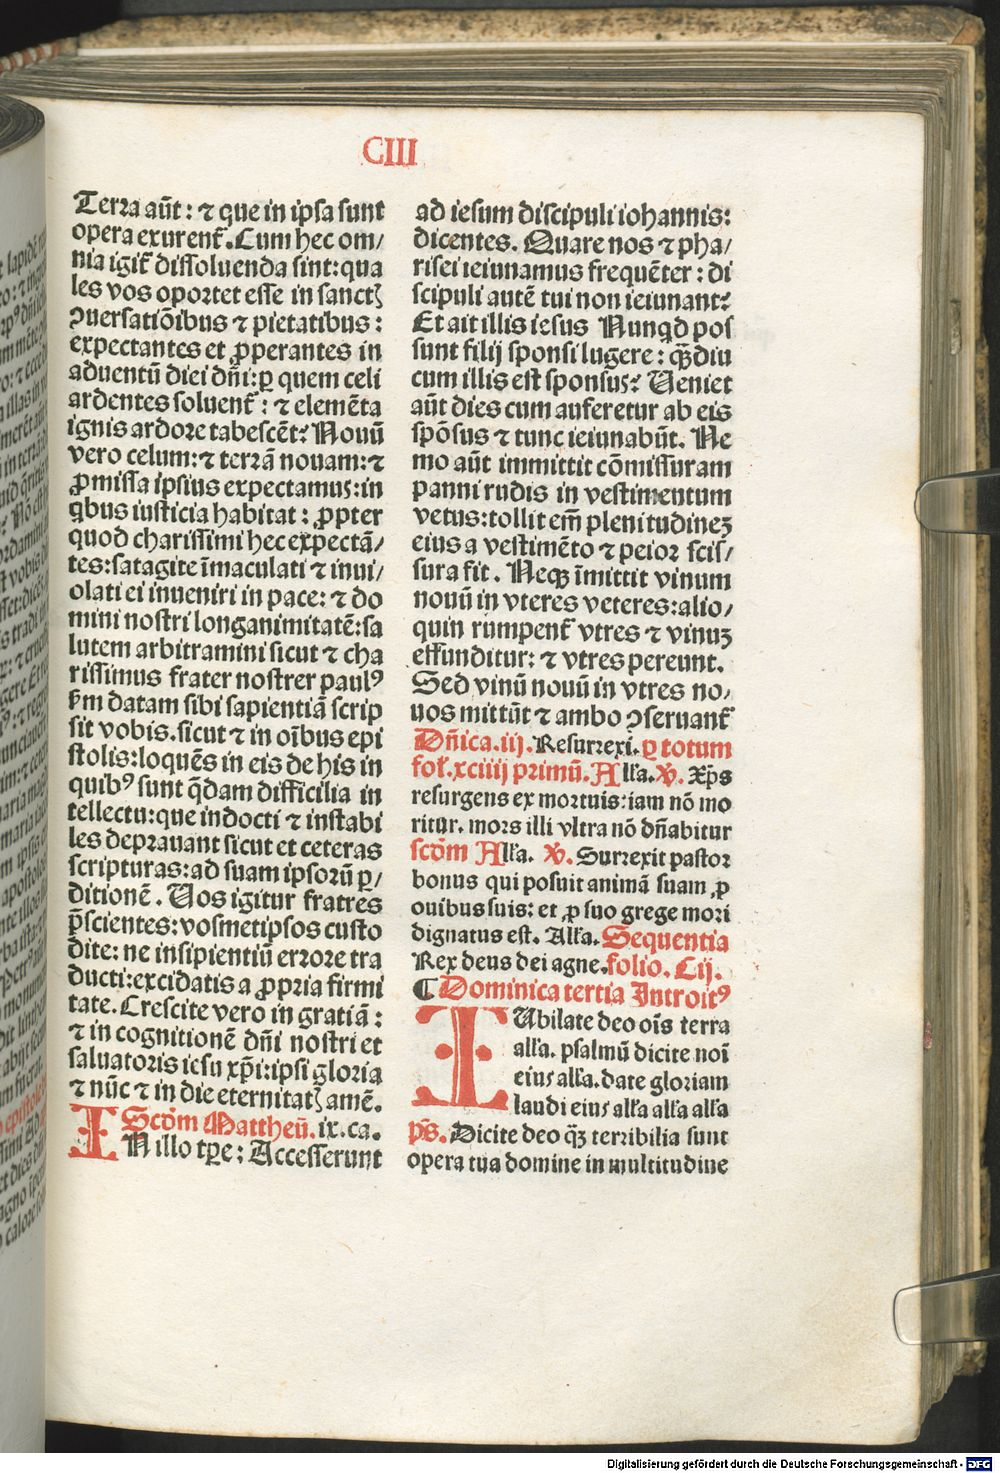 CIII
Terra aūt : ⁊ que in ipsa sunt
opera exurent᷑. Cum hec om/
nia igit᷑ dissoluenda sint: qua
les vos oportet esse in sanctꝭ
ꝯuersatiōibus ⁊ pietatibus :
expectantes et ꝓperantes in
aduentū diei dn̄i: ꝑ quem celi
ardentes soluent᷑ : ⁊ elemēta
ignis ardore tabescēt? Nouū
vero celum: ⁊ terrā nouam: ⁊
ꝓmissa ipsius expectamus: in
qbus iusticia habitat : ꝓpter
quod charissimi hec expectā/
tes: satagite īmaculati ⁊ inui/
olati ei inueniri in pace: ⁊ do
mini nostri longanimitatē: sa
lutem arbitramini sicut ⁊ cha
rissimus frater nostrer paulꝰ
ẜm datam sibi sapientiā scrip
sit vobis. sicut ⁊ in oībus epi
stolis: loquēs in eis de his in
quibꝰ sunt q̄dam difficilia in
tellectu: que indocti ⁊ instabi
les deprauant sicut et ceteras
scripturas: ad suam ipsorū ꝑ/
ditionē. Uos igitur fratres
p̄scientes: vosmetipsos custo
dite: ne insipientiū errore tra
ducti: excidatis a ꝓpria firmi
tate. Crescite vero in gratiā :
⁊ in cognitionē dn̄i nostri et
saluatoris iesu xp̄i: ipsi gloria
⁊ nūc ⁊ in die eternitatꝭ amē.
Scd̄m Mattheū. ix. ca.
IN illo tp̄e : Accesserunt
ad iesum discipuli iohannis:
dicentes. Quare nos ⁊ pha/
risei ieiunamus frequēter : di
scipuli autē tui non ieiunant?
Et ait illis iesus Nunqd pos
sunt filij sponsi lugere : qꝫdiu
cum illis est sponsus? Ueniet
aūt dies cum auferetur ab eis
spōsus ⁊ tunc ieiunabūt. Ne
mo aūt immittit cōmissuram
panni rudis in vestimentum
vetus: tollit em̄ plenitudineꝫ
eius a vestimēto ⁊ peior scis/
sura fit. Neqꝫ īmittit vinum
nouū in vteres veteres: alio/
quin rumpent᷑ vtres ⁊ vinuꝫ
effunditur: ⁊ vtres pereunt.
Sed vinū nouū in vtres no/
uos mittūt ⁊ ambo ꝯseruant᷑
Dn̄ica. iij. Resurrexi. ꝑ totum
fol. xciiij primū. Alla. ℣. Xp̄s
resurgens ex mortuis: iam nō mo
ritur. mors illi vltra nō dn̄abitur
scd̄m Alla. ℣. Surrexit pastor
bonus qui posuit animā suam ꝓ
ouibus suis: et ꝓ suo grege mori
dignatus est. Alla. Sequentia
Rex deus dei agne. folio. Cij.
¶ Dominica tertia Introitꝰ
IUbilate deo oīs terra
alla. psalmū dicite noī
eius alla. date gloriam
laudi eius alla alla alla
p̄s. Dicite deo qꝫ terribilia sunt
opera tua domine in multitudine
Digitalisierung gefördert durch die Deutsche Forschungsgemeinschaft - DFG